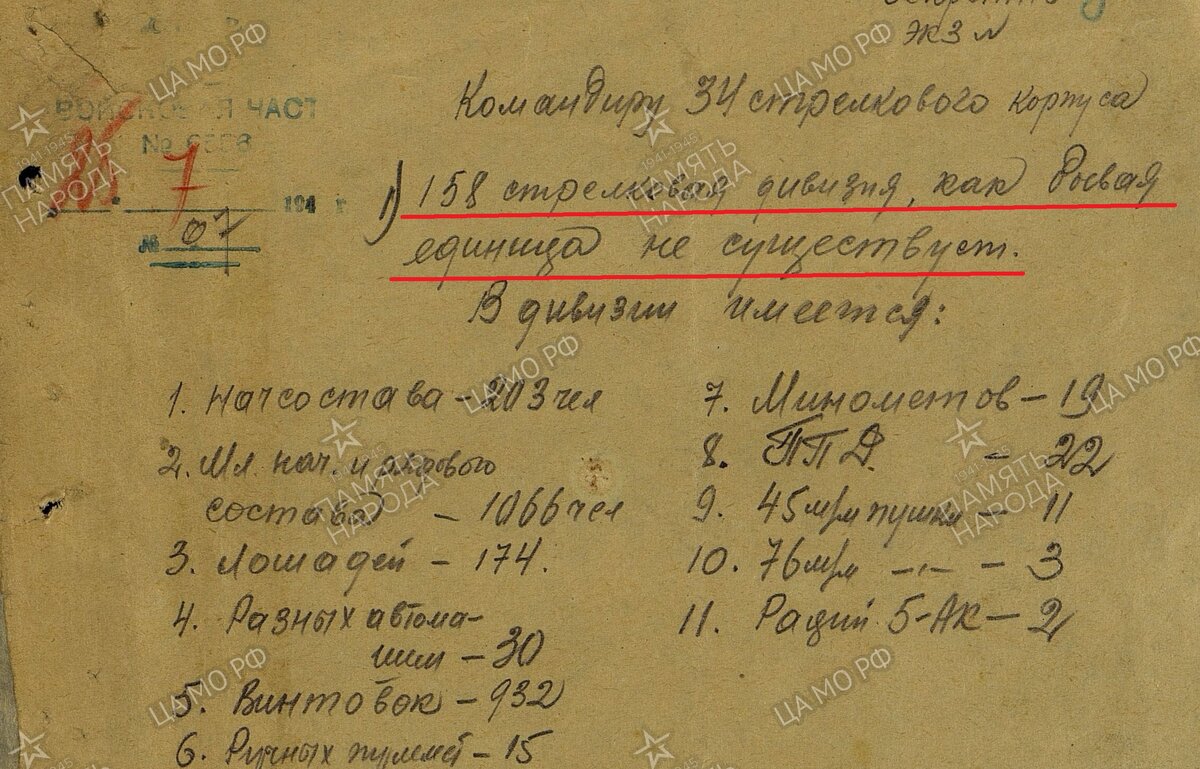 Экз №
Командиру 34 стрелкового корпуса
ВОЙСКОВАЯ ЧАСТ
№
7
194 г
№ 07
1) 158 стрелковая дивизия, как боевая
единица не существует.
В дивизии имеется:
1. Начсостава – 203 чел
2. Мл нач. и рядового
состава – 1066 чел
3. Лошадей – 174.
4. Разных автома-
шин – 30
5. Винтовок – 932
6. Ручных пулемет – 15
7. Минометов – 19
8. ППД. – 22
9. 45 м/м пушки – 11
10. 76 м/м –"– – 3
11. Раций 5-АК – 2
ЦА МО РФ
1941-1945
ПАМЯТЬ
НАРОДА